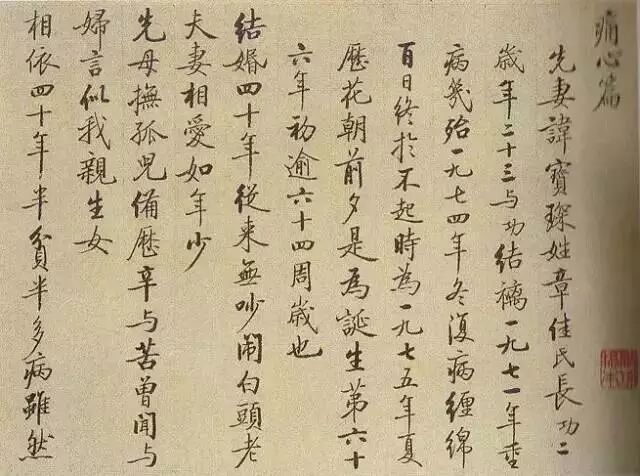 痛心篇
先妻諱寶琛姓章佳氏長功二
歲年二十三与功结褵一九七一年重
病幾殆一九七四年冬復病纏綿
百日终於不起時為一九七五年夏
歷花朝前夕是為誕生第六十
六年初逾六十四周歲也
结婚四十年從来無吵闹白頭老
夫妻相愛如年少
先母撫孤兒備歷辛与苦曾闻与
婦言似我親生女
相依四十年半貧半多病雖然